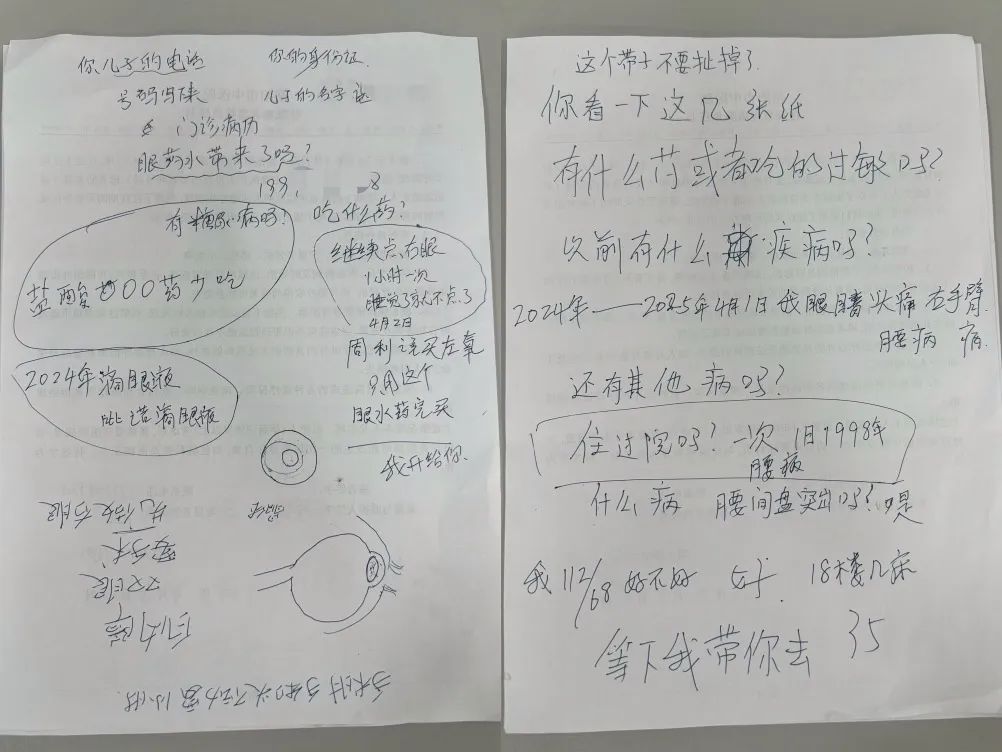 你儿子的电话
你的身份证
号码写来
儿子的名字
门诊病历
眼药水带来了吗?
199,
8
有糖尿病吗?
吃什么药?
盐酸 药少吃
继续点右眼
1小时一次
睡觉了就不点了
4月2日
周利 买左氧
只用这个
眼水药完买
我开给你.
2024年滴眼液
滴眼液
先做右眼
要手术
双眼
白内障
手术时 头不动 1小时
这个带子不要扯掉了.
你看一下这几张纸
有什么药或者吃的过敏吗?
以前有什么 疾病吗?
2024年——2025年4月1日 我眼睛头痛右手臂
腰病 痛.
还有其他病吗?
住过院吗? 一次 1日1998年
腰病
什么病 腰间盘突出吗? 是
我112/68好不好 好. 18楼几床
等下我带你去 35